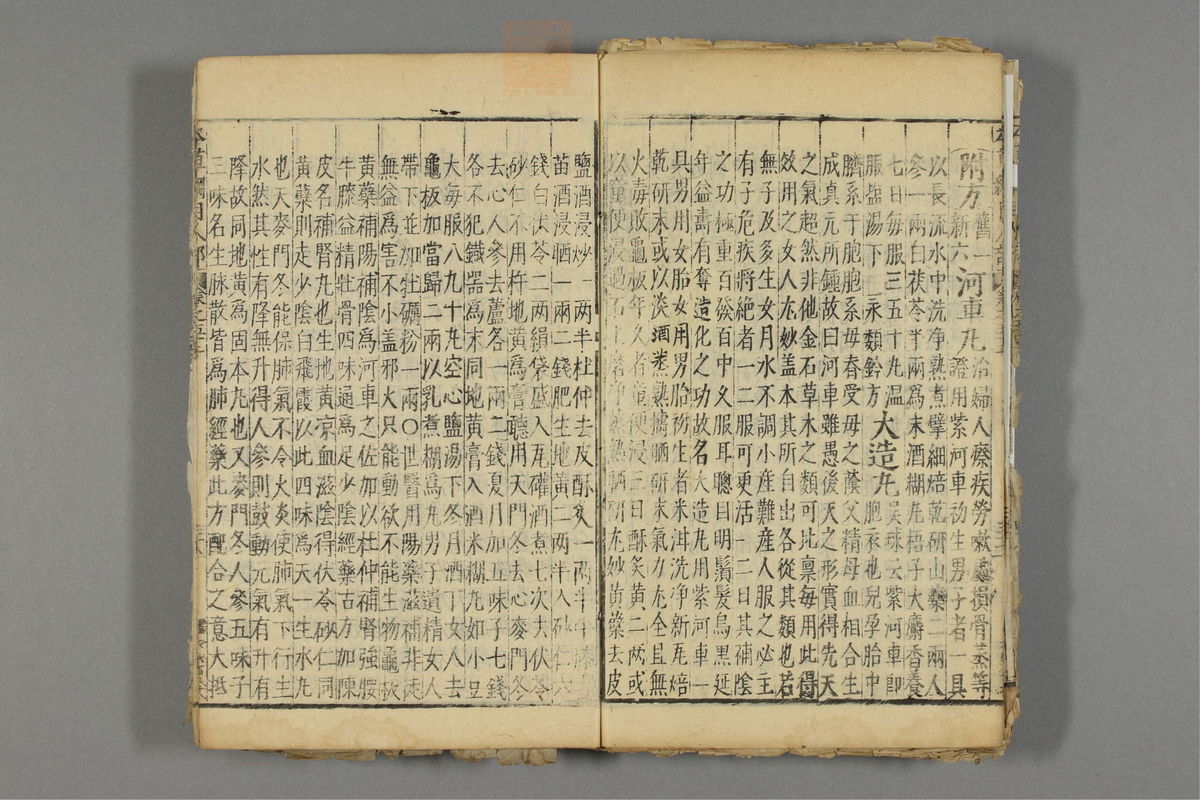 附方舊一新六河車丸治婦人瘵疾勞嗽虛損骨蒸等證用紫河車初生男子者一具
以長流水中洗淨熟煮擘細焙乾研山藥二兩人
參一兩白茯苓半兩爲末酒糊丸梧子大麝香養
七日每服三五十丸溫
服盐湯下永類鈐方大造丸吳球云紫河車即胞衣也兒孕胎中
臍系于胞胞系母脊受母之蔭父精母血相合生
成真元所鍾故曰河車雖愚後天之形實得先天
之氣超然非他金石草木之類可比稟每用此得
效用之女人尤妙盖本其所自出各從其類也若
無子及多生女月水不調小產難產人服之必主
有子危疾將絕者一二服可更活一二日其補陰
之功極重百發百中久服耳聰目明鬚髮烏黑延
年益壽有奪造化之功故名大造丸用紫河車一
具男用女胎女用男胎初生者米泔洗淨新瓦焙
乾研末或以淡酒蒸熟擣晒研末氣力尤全且無
火毒敗龜板年久者童便浸三日酥炙黄二兩或
以童便浸過石上磨淨蒸熟晒研尤妙黄蘗去皮
鹽酒浸炒一兩半杜仲去皮酥炙一兩半牛膝去
苗酒浸晒一兩二錢肥生地黄二兩半入砂仁六
錢白茯苓二兩絹袋盛入瓦礶酒煮七次去伏苓
砂仁不用杵地黄爲膏聽用天門冬去心麥門冬
去心人參去蘆各一兩二錢夏月加五味子七錢
各不犯鐵器爲末同地黄膏入酒米糊丸如小豆
大每服八九十丸空心鹽湯下冬月酒下女人去
龜板加當歸二兩以乳煮糊爲丸男子遺精女人
帶下並加牡礪粉一兩○世醫用陽藥滋補非徒
無益爲害不小盖邪火只能動欲不能生物龜板
黄蘗補陽補陰爲河車之佐加以杜仲補腎強腰
牛膝益精壯骨四味通爲足少陰經藥古方加陳
皮名補腎丸也生地黄凉血滋陰得伏苓砂仁同
黄蘗則走少陰白飛霞以此四味爲天一生水丸
也天麥門冬能保肺氣不令火炎使肺氣下行生
水然其性有降無升得人參則鼓動元氣有升有
降故同地黄爲固本丸也又麥門冬人參五味子
三味名生脉散皆爲肺經藥此方配合之意大抵